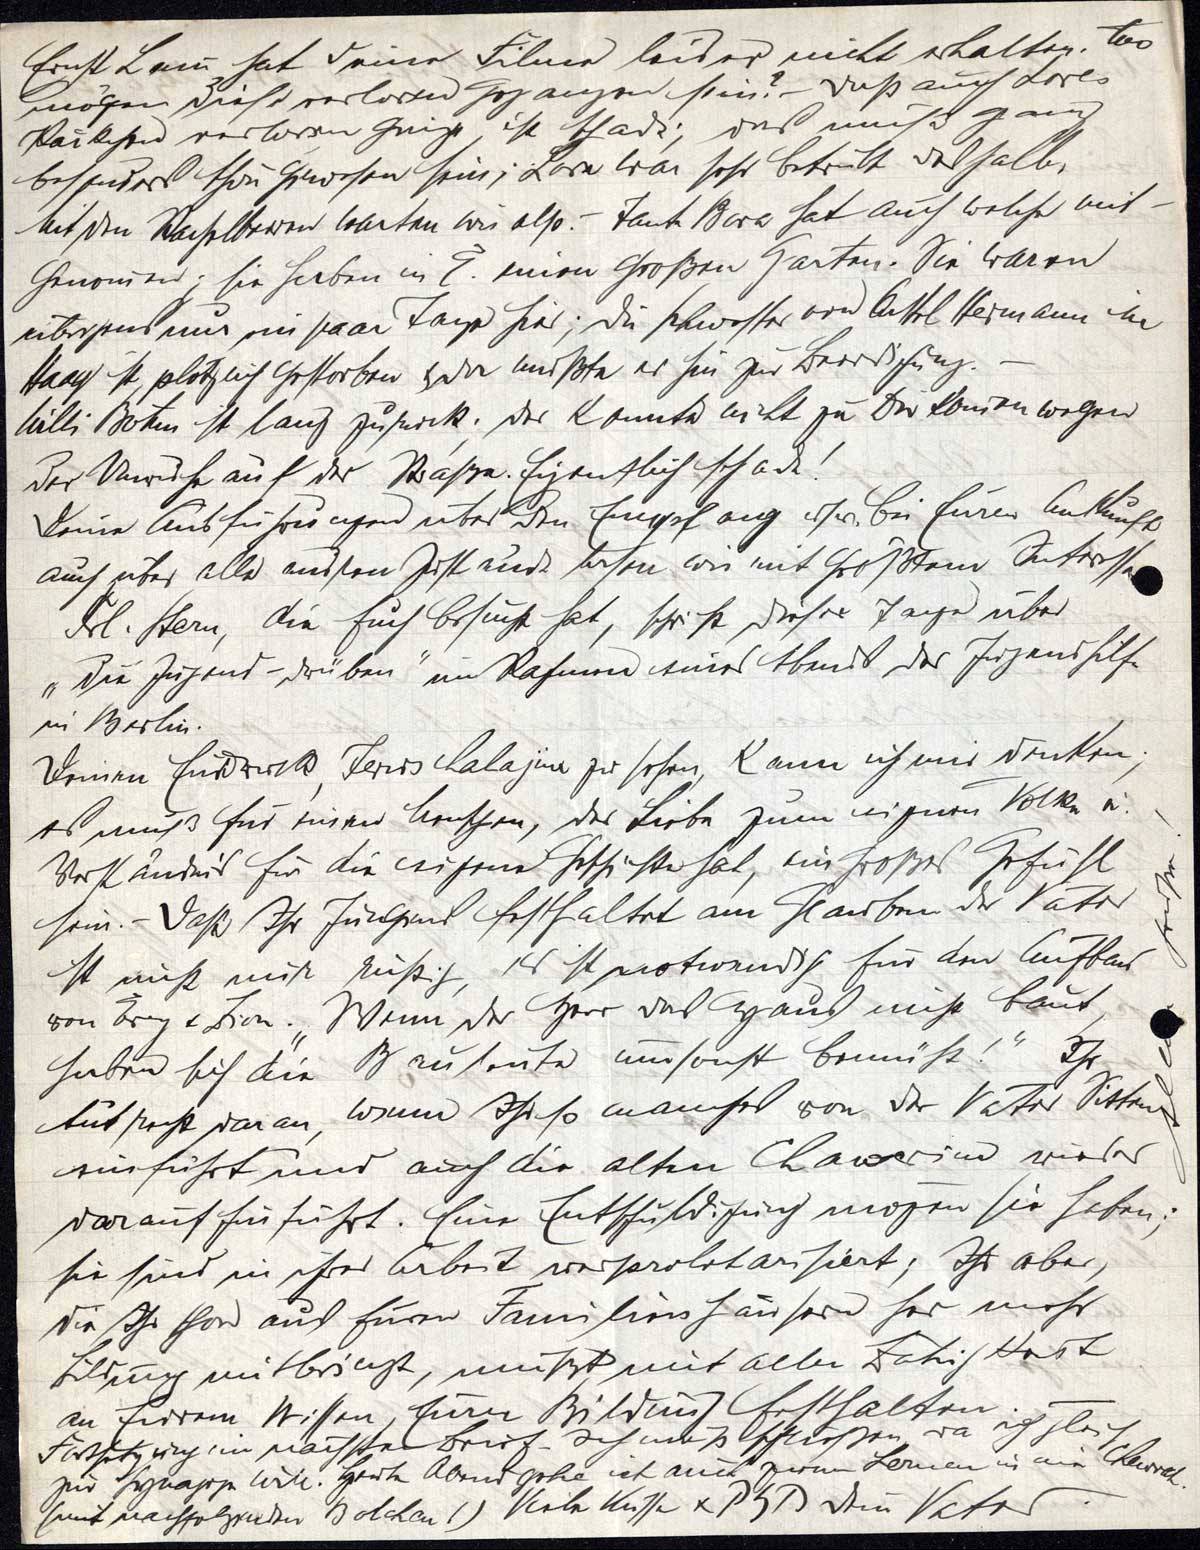 Ernst Laun hat Deine Filme leider nicht erhalten. Wo
mögen diese verloren gegangen sein? – Daß auch Lores
Päckchen verloren ging, ist schade; das muß ganz
besonders schön gewesen sein; Lore war sehr betrübt deshalb.
Mit den warten wir also. – Tante Bora hat auch welche mit-
genommen; sie haben in E. einen großen Garten. Sie waren
übrigens nur ein paar Tage hier; die Schwester von Onkel Hermann im
Haag ist plötzlich gestorben & da mußte er hin zur Beerdigung. –
Willi Bohm ist lang zurück. Der konnte nicht zu Dir kommen wegen
der Unruhe auf der Straße. Eigentlich schade!
Deine Ausführungen über den Empfang usw. bei Eurer Ankunft
auch über alle Zustände lasen wir mit größtem Interesse
Frl. Stern, die Euch besucht hat, spricht dieser Tage über
„Die Jugend – drüben" im Rahmen eines Abends der Jugendhilfe
in Berlin.
Deinen Eindruck, Jeruschalajim zu sehen, kann ich mir denken;
es muß für einen Menschen, der Liebe zum eignen Volke u.
Verständnis für die eigene Geschichte hat, ein großes Gefühl
sein. – Daß Ihr Jungens festhaltet am Glauben der Väter
ist nicht nur richtig, es ist notwendig für den Aufbau
von Erez & Zion. „Wenn der Herr das Haus nicht baut,
haben sich die Bauleute umsonst bemüht!" Ihr
tut recht daran, wenn Ihr so manches von der Väter Sitten
einführt und auch die alten Chawerim wieder
darauf hinführt. Eine Entschuldigung mögen sie haben;
sie sind in ihrer Arbeit verproletarisiert; Ihr aber,
die Ihr schon aus Euren Familienhäusern her mehr
Bildung mitbringt, müßt mit aller Zähigkeit
an Eurem Wissen, Eurer Bildung festhalten. –
Fortsetzung im nächsten Brief. Ich muß schließen, da ich gleich
zur Synagoge will. Heute Abend gehe ich auch zum Lernen in die
(mit nachfolgenden !) Viele Küsse & Dein Vater.